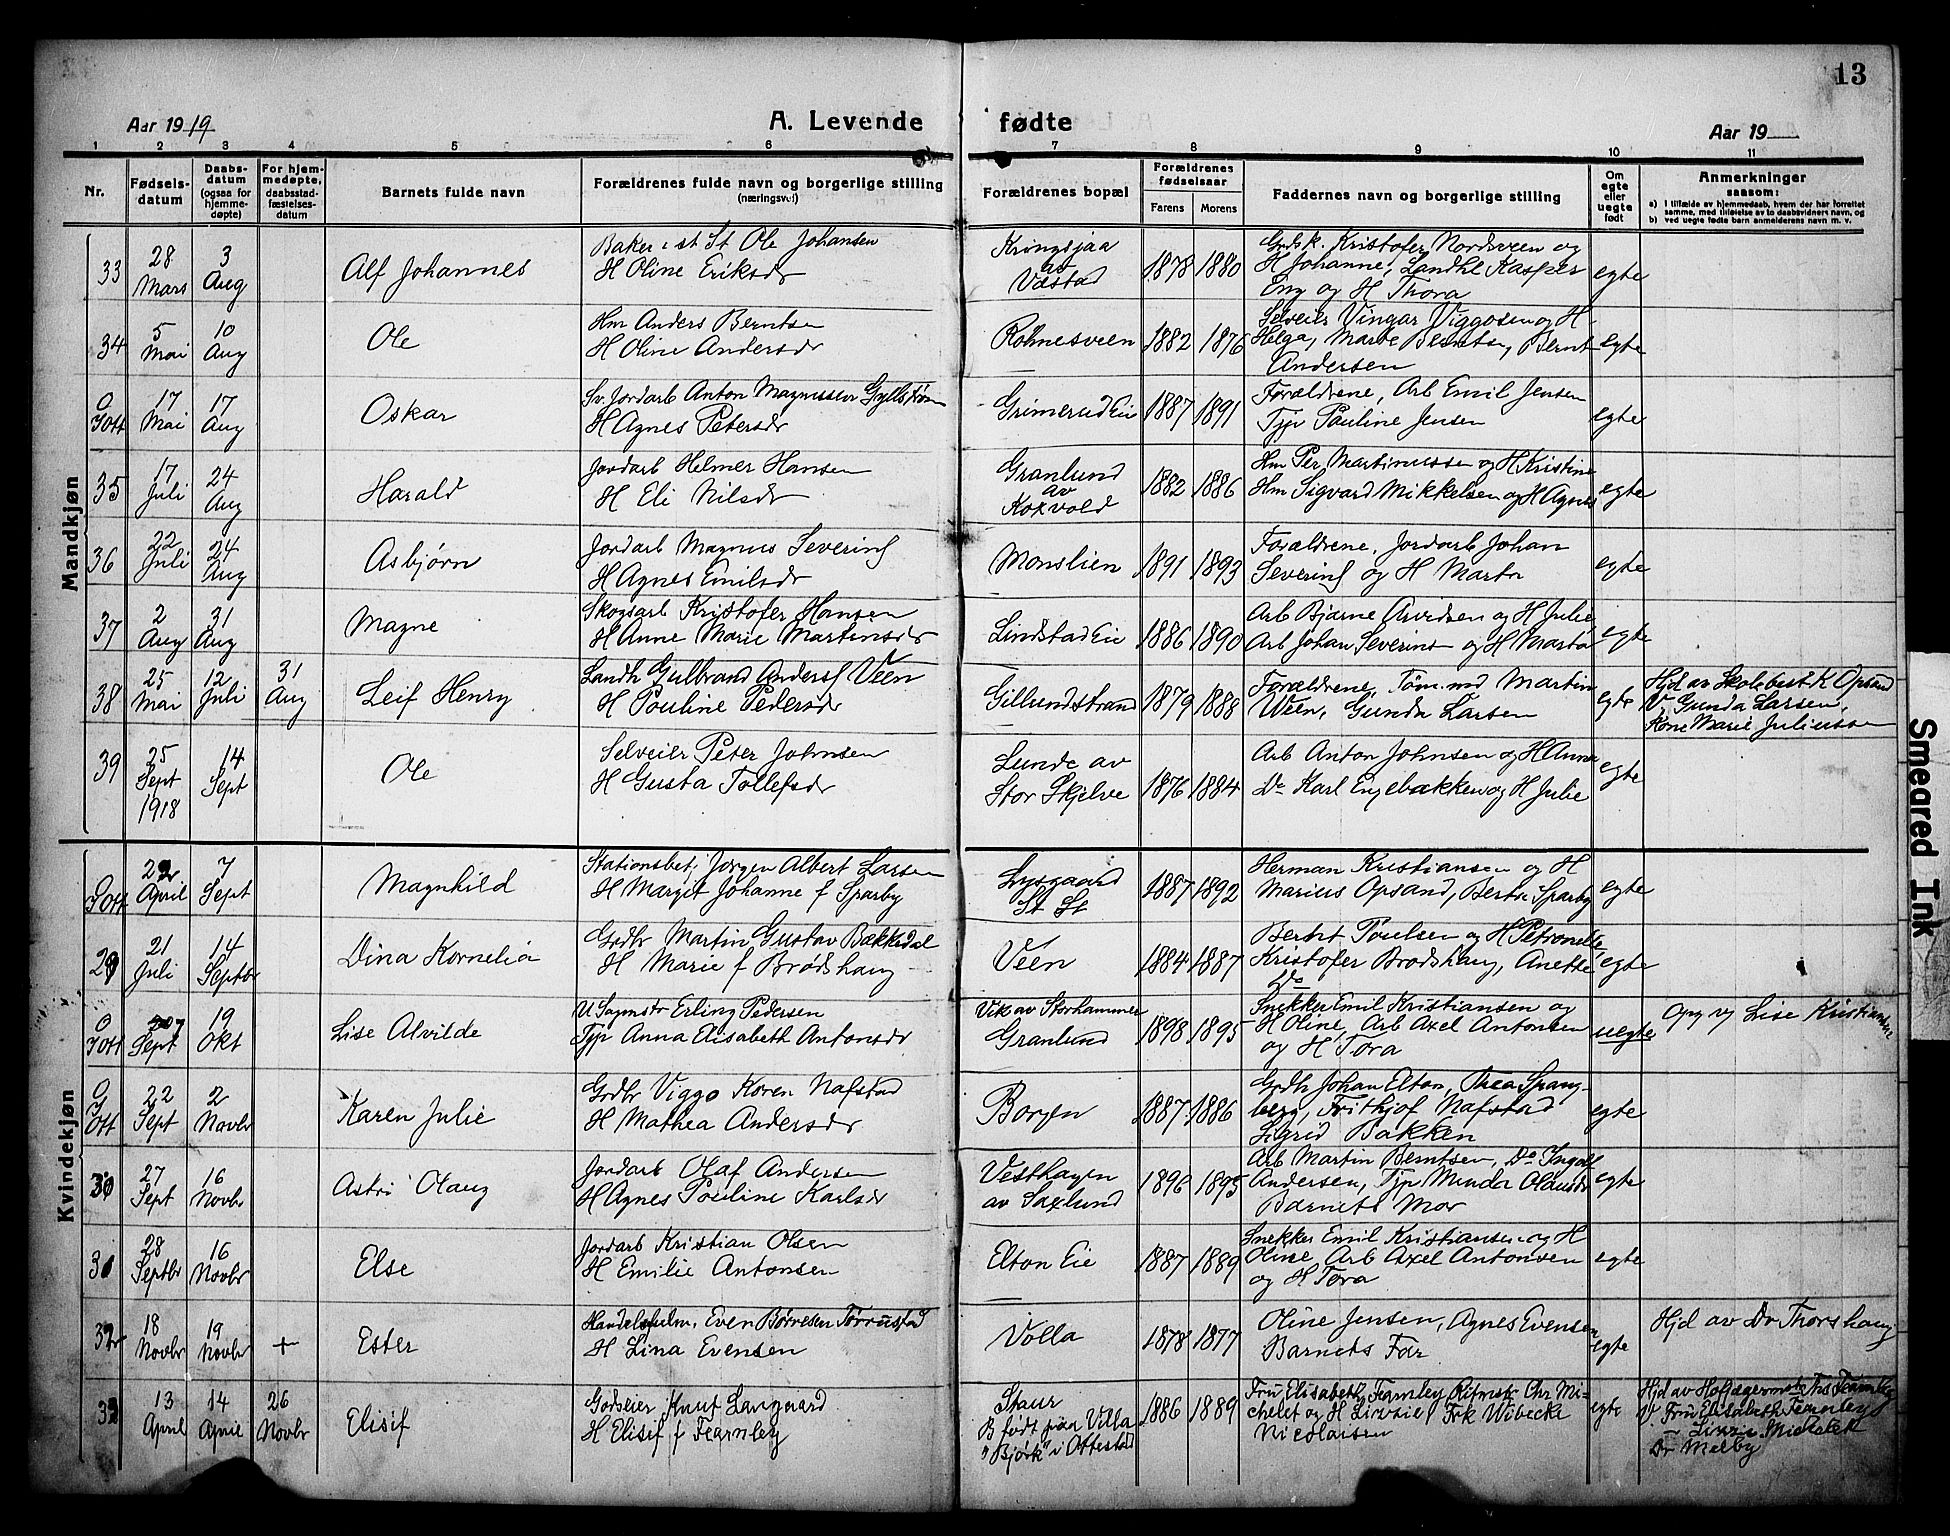 13
Aar 1919
A. Levende fødte
Aar 19
1 2 3 4 5 6 7 8 9 10 11
Nr.
Fødsels-
datum
Daabs-
datum
(ogsaa for
hjemme-
døpte)
For hjem-
medøpte,
daabsstad-
fæstelses-
datum
Barnets fulde navn
Forældrenes fulde navn og borgerlige stilling
(næringsvei)
Forældrenes bopæl
Forældrenes
fødselsaar
Farens Morens
Faddernes navn og borgerlige stilling
Om
egte
eller
uegte
født
Anmerkninger
saasom:
a) I tilfælde av hjemmedaab, hvem der har forrettet
samme, med tilføielse av to daabsvidners navn, og
b) ved uegte fødte barn anmelderens navn m. v.
Mandkjøn
33
28
Mars
3
Aug
Alf Johannes
Baker i st St Ole Johansen
H Oline Eriksdr
Kringsjaa
av
Vdstad
1878 1880
Grdsk. Kristofer Nordsveen og
H Johanne, Landhl Kasper
Eng og H Thora
egte
34
5
Mai
10
Aug
Ole
Hm Anders Berntsen
H Oline Andersdr
Rohnesveen
1882 1876
Selveier Vingar Viggosen og H
Helga, Marte Berntsen, Bernt
Andersen
egte
O
Gott
17
Mai
17
Aug
Oskar
Sv. Jordarb Anton Magnussen Gyllstrøm
H Agnes Petersdr
Grimerud Eie
1887 1891
Forældrene, Arb Emil Jensen
Typ Pauline Jensen
egte
35
17
Juli
24
Aug
Harald
Jordarb Helmer Hansen
H Eli Nilsdr
Granlund
av
Kokvold
1882 1886
Hm Per Martinussen og H Kristine
Hm Sigvard Mikkelsen og H Agnes
egte
36
22
Juli
24
Aug
Asbjørn
Jordarb Magnus Severins
H Agnes Emilsdr
Monslien
1891 1893
Forældrene, Jordarb Johan
Severins og H Marta
egte
37
2
Aug
31
Aug
Magne
Skogsarb Kristofer Hansen
H Anne Marie Martinsdr
Lindstad Eie
1886 1890
Arb Bjarne Arvidsen og H Julie
Arb Johan Severins og H Marta
egte
38
25
Mai
12
Juli
31
Aug
Leif Henry
Landh Gulbrand Anders Veen
H Pouline Pedersdr
Gillundstrand
1879 1888
Forældrene, Tømmd Martin
Veen, Gunda Larsen
egte
Hjd av Skolebest K Opsand
V Gunda Larsen,
Kone Marie Juliussen
39
25
Sept
1918
14
Sept
Ole
Selveier Peter Johnsen
H Gusta Tollefsdr
Lunde av
Stor Skjelve
1876 1884
Arb Anton Johnsen og H Anna
Do Karl Engebakken og H Julie
egte
Kvindekjøn
Gott
22
April
7
Sept
Magnhild
Stationsbet. Jørgen Albert Larsen
H Margit Johanne f Sparby
Lysgaard
St St
1887 1892
Herman Kristiansen og H
Marius Opsand, Berte Sparby
egte
29
21
Juli
14
Septbr
Dina Kornelia
Grdbr Martin Gustav Bækkedal
H Marie f Brødshaug
Veen
1884 1887
Bernt Poulsen og H Petronelle
Kristofer Brodshaug, Anette
Do
egte
O
Gott
7
Sept
19
Okt
Lise Alvilde
U Sagmstr Erling Pedersen
Typ Anna Elisabeth Antonsdr
Vik av Storhammer
Granlund
1898 1895
Snekker Emil Kristiansen og
H Oline, Arb Axel Antonsen
og H Tora
uegte
Opg vg Lise Kristiansen
O
Gott
22
Sept
2
Novbr
Karen Julie
Grdbr Viggo Koren Nafstad
H Mathea Andersdr
Borgen
1887 1886
Grdb Johan Elton, Thea Spang-
berg, Frithjof Nafstad
Sigrid Bakken
egte
30
27
Sept
16
Novbr
Astri Olaug
Jordarb Olaf Andersen
H Agnes Pouline Karlsdr
Vesthagen
av Saxlund
1896 1895
Arb Martin Berntsen, Do Ingolf
Andersen, Typ Minda Olausdr
Barnets Mor
egte
31
28
Septbr
16
Novbr
Else
Jordarb Kristian Olsen
H Emilie Antonsen
Elton Eie
1887 1889
Snekker Emil Kristiansen og H
Oline Arb Axel Antonsen
og H Tora
egte
32
18
Novbr
19
Novbr
+
Ester
Even Børresen Tørrustad
H Lina Evensen
Volla
1878 1877
Oline Jensen, Agnes Evensen
Barnets Far
egte
Hjd av Dr Thorshaug
33
13
April
14
April
26
Novbr
Elisif
Godseier Knut Langaard
H Elisif f Fearnley
Staur
B født paa Villa
"Bjørk" i Ottestad
1886 1889
Fru Elisabeth Fearnley Ritmstr Chr Mi-
chelet og H Lizzie, Frk Wibecke
Nicolaisen
egte
Hjd av Hofjægermstr Ths Fearnley
V Fru Elisabeth Fearnley
~ Lizzie Michelet
Dr Melby
Smeared Ink